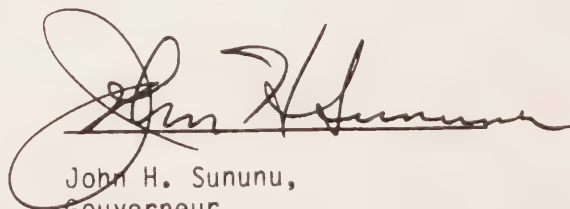 John H Sununu
John H. Sununu,
Gouverneur